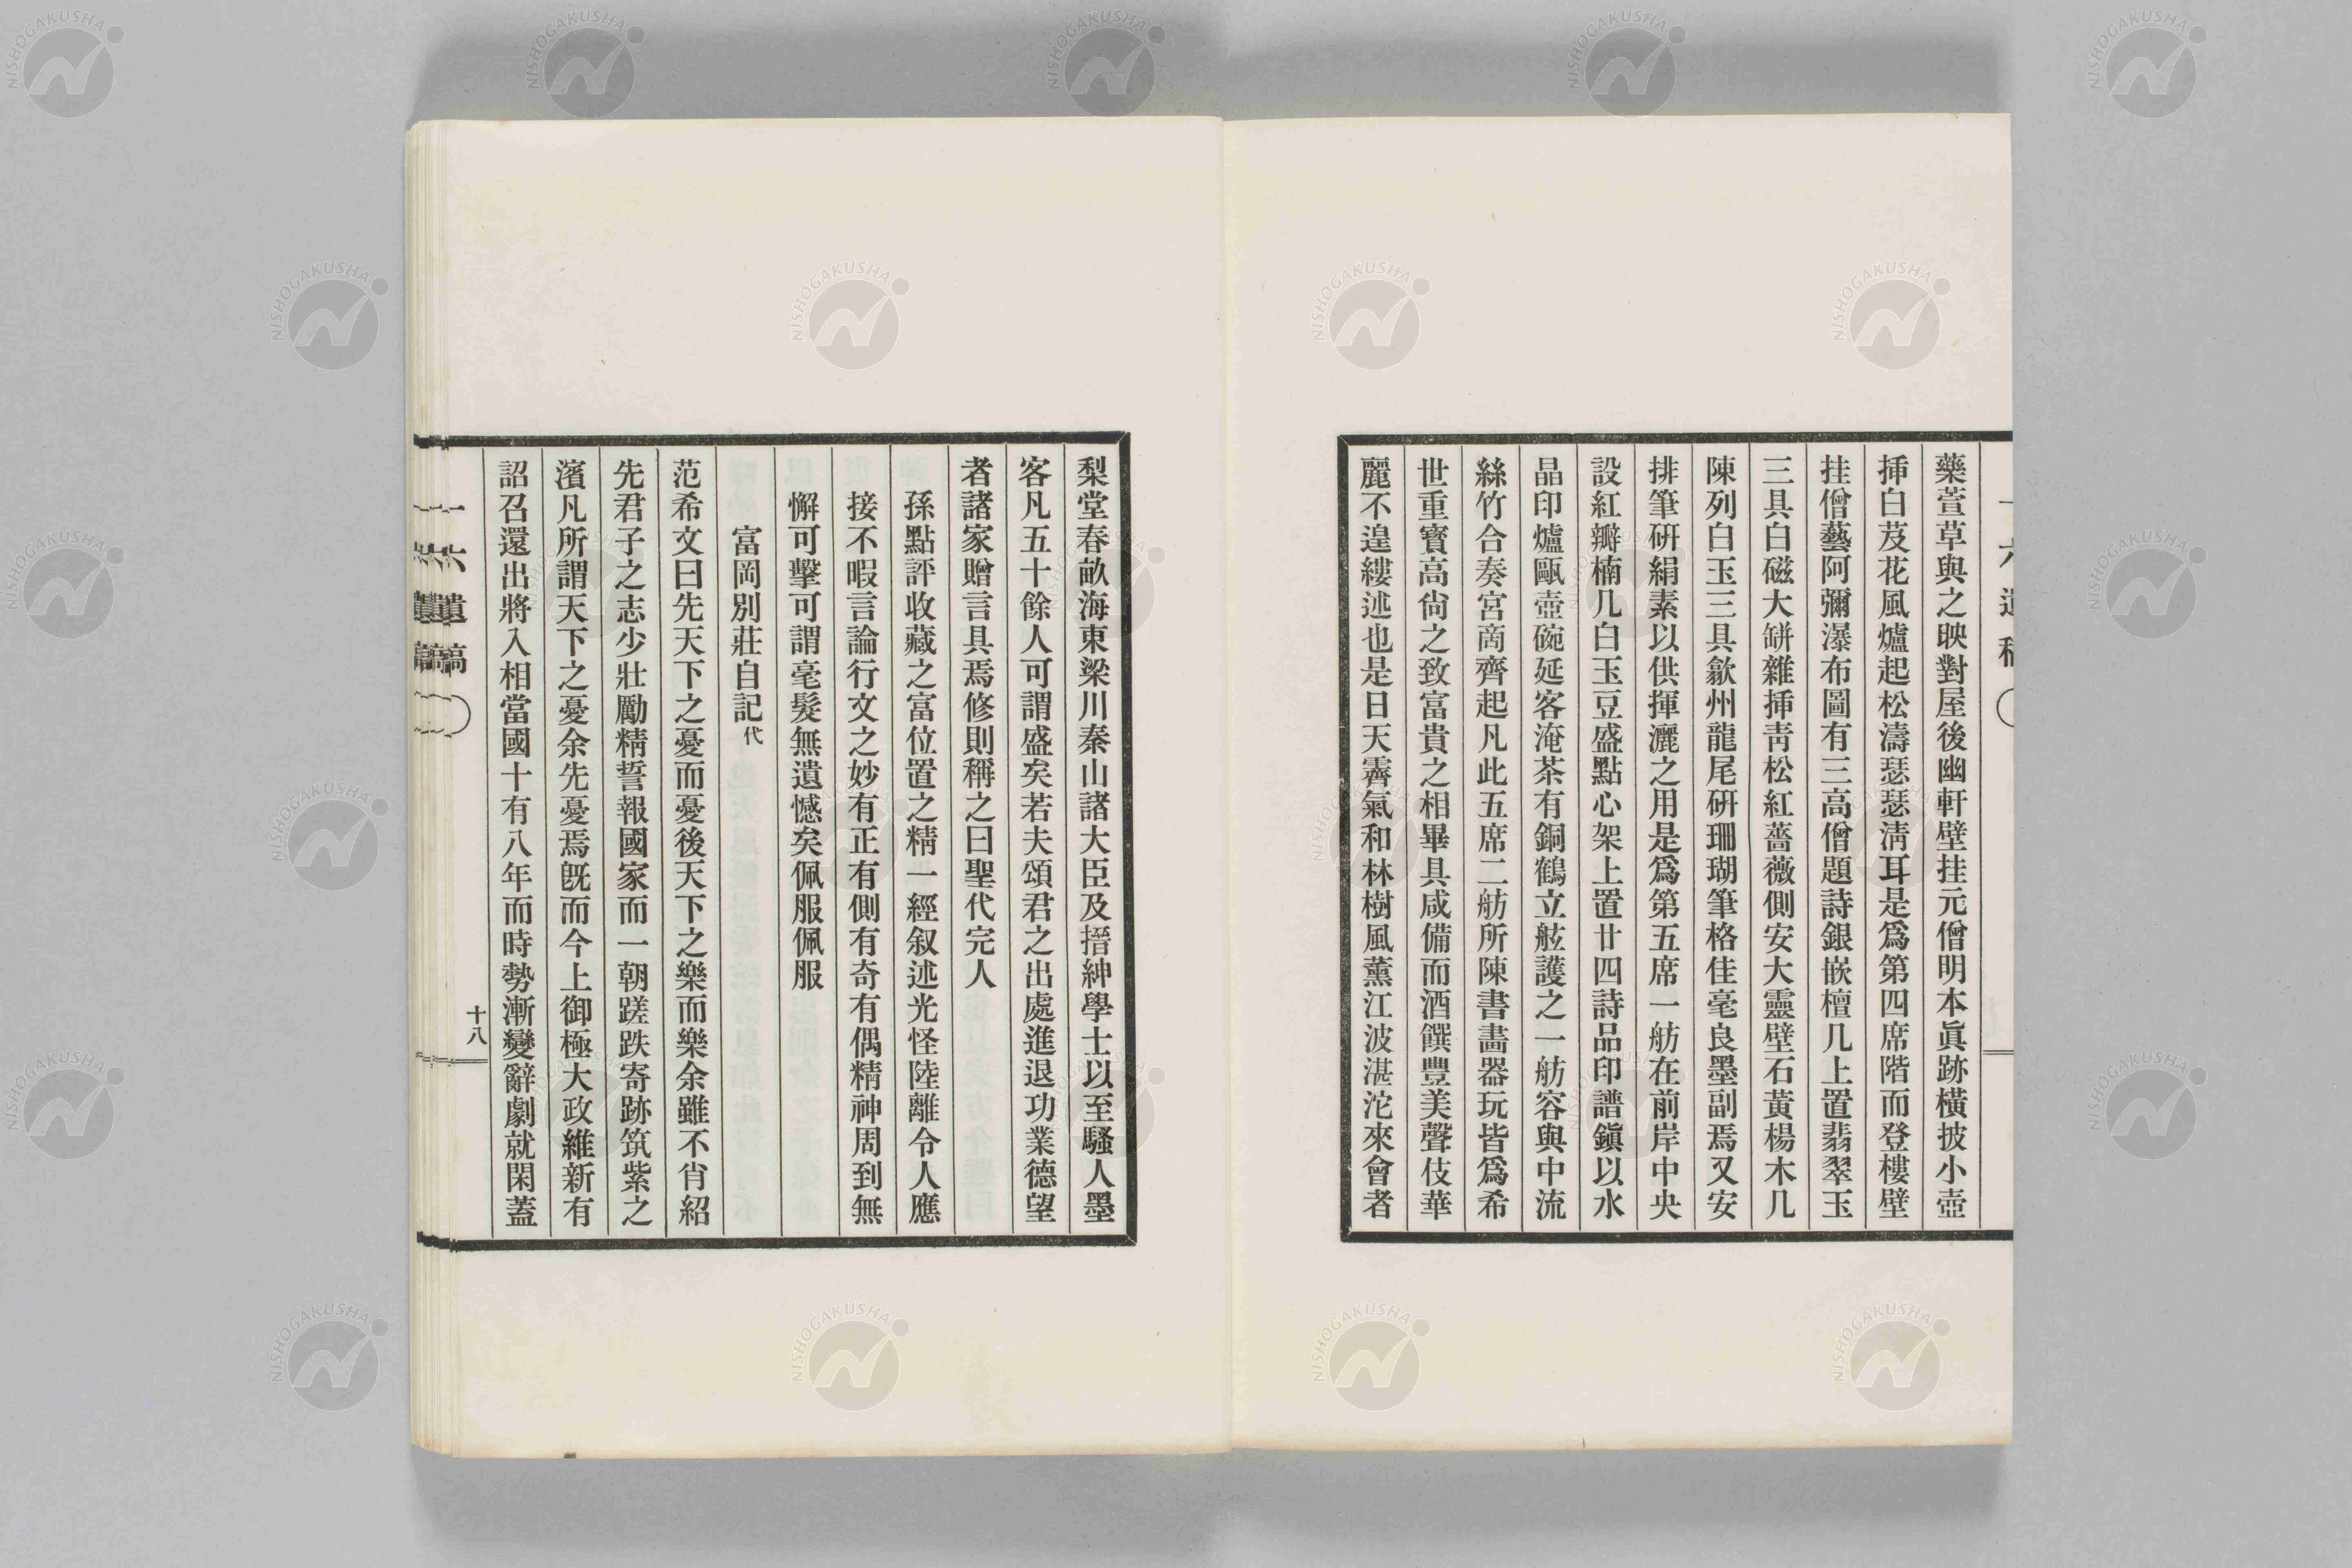 藥萱草與之映對屋後幽軒壁挂元僧明本眞跡橫披小壺
揷白芨花風爐起松濤瑟瑟淸耳是爲第四席階而登樓壁
挂僧藝阿彌瀑布圖有三高僧題詩銀嵌檀几上置翡翠玉
三具白磁大缾雜揷靑松紅薔薇側安大靈壁石黃楊木几
陳列白玉三具歙州龍尾硏珊瑚筆格佳毫良墨副焉又安
排筆硏絹素以供揮灑之用是爲第五席一舫在前岸中央
設紅瓣楠几白玉豆盛點心架上置廿四詩品印譜鎭以水
晶印爐甌壺碗延客淹茶有銅鶴立舷護之一舫容與中流
絲竹合奏宮商齊起凡此五席二舫所陳書畵器玩皆爲希
世重寶高尙之致富貴之相畢具咸備而酒饌豐美聲伎華
麗不遑縷述也是日天霽氣和林樹風薰江波湛沱來會者
梨堂春畝海東梁川秦山諸大臣及搢紳學士以至騷人墨
客凡五十餘人可謂盛矣若夫頌君之出處進退功業德望
者諸家贈言具焉修則稱之曰聖代完人
孫點評收藏之富位置之精一經叙述光怪陸離令人應
接不暇言論行文之妙有正有側有奇有偶精神周到無
懈可擊可謂毫髮無遺憾矣佩服佩服
富岡別莊自記代
范希文曰先天下之憂而憂後天下之樂而樂余雖不肖紹
先君子之志少壯勵精誓報國家而一朝蹉跌寄跡筑紫之
濱凡所謂天下之憂余先憂焉旣而今上御極大政維新有
詔召還出將入相當國十有八年而時勢漸變辭劇就閑蓋
一六遺稿
十八
NISHOGAKUSHA